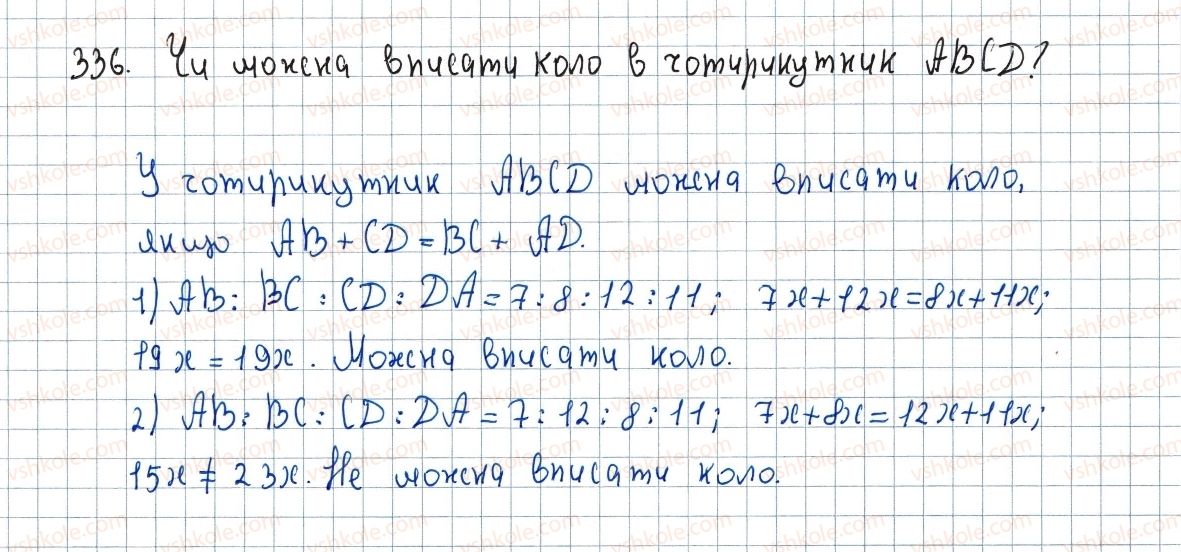 336. Чи можна вписати коло в чотирикутник ABCD?
У чотирикутник ABCD можна вписати коло,
якщо AB + CD = BC + AD.
1) AB : BC : CD : DA = 7 : 8 : 12 : 11; 7x + 12x = 8x + 11x;
19x = 19x. Можна вписати коло.
2) AB : BC : CD : DA = 7 : 12 : 8 : 11; 7x + 8x = 12x + 11x;
15x ≠ 23x. Не можна вписати коло.